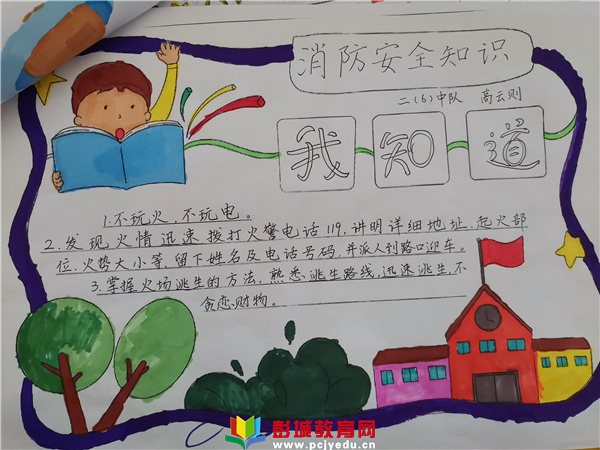 消防安全知识
二(6)中队 高云则
我知道
1.不玩火,不玩电。
2.发现火情迅速拨打火警电话119,讲明详细地址.起火部
位.火势大小等,留下姓名及电话号码,并派人到路口迎车。
3.掌握火场逃生的方法.熟悉逃生路线,迅速逃生,不
贪恋财物。
彭城教育网
www.pcjyedu.cn